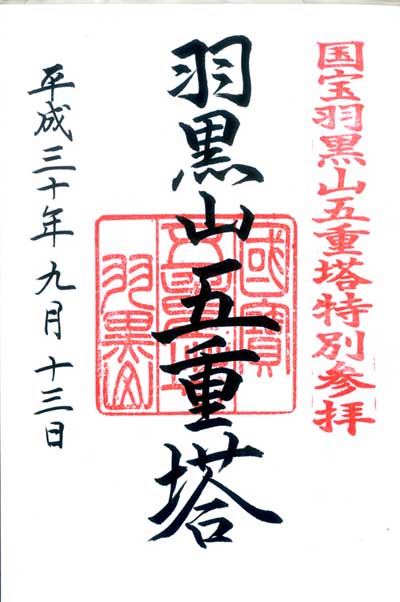 国宝羽黒山五重塔特別参拝
羽黒山五重塔
國寶
五重塔
羽黒山
平成三十年九月十三日